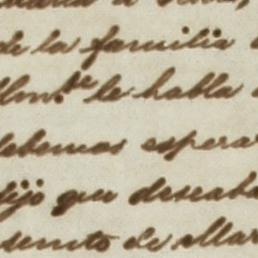 de la familia
Ilm.te le habla
debemos espera
dijo que deseaba
de Mar